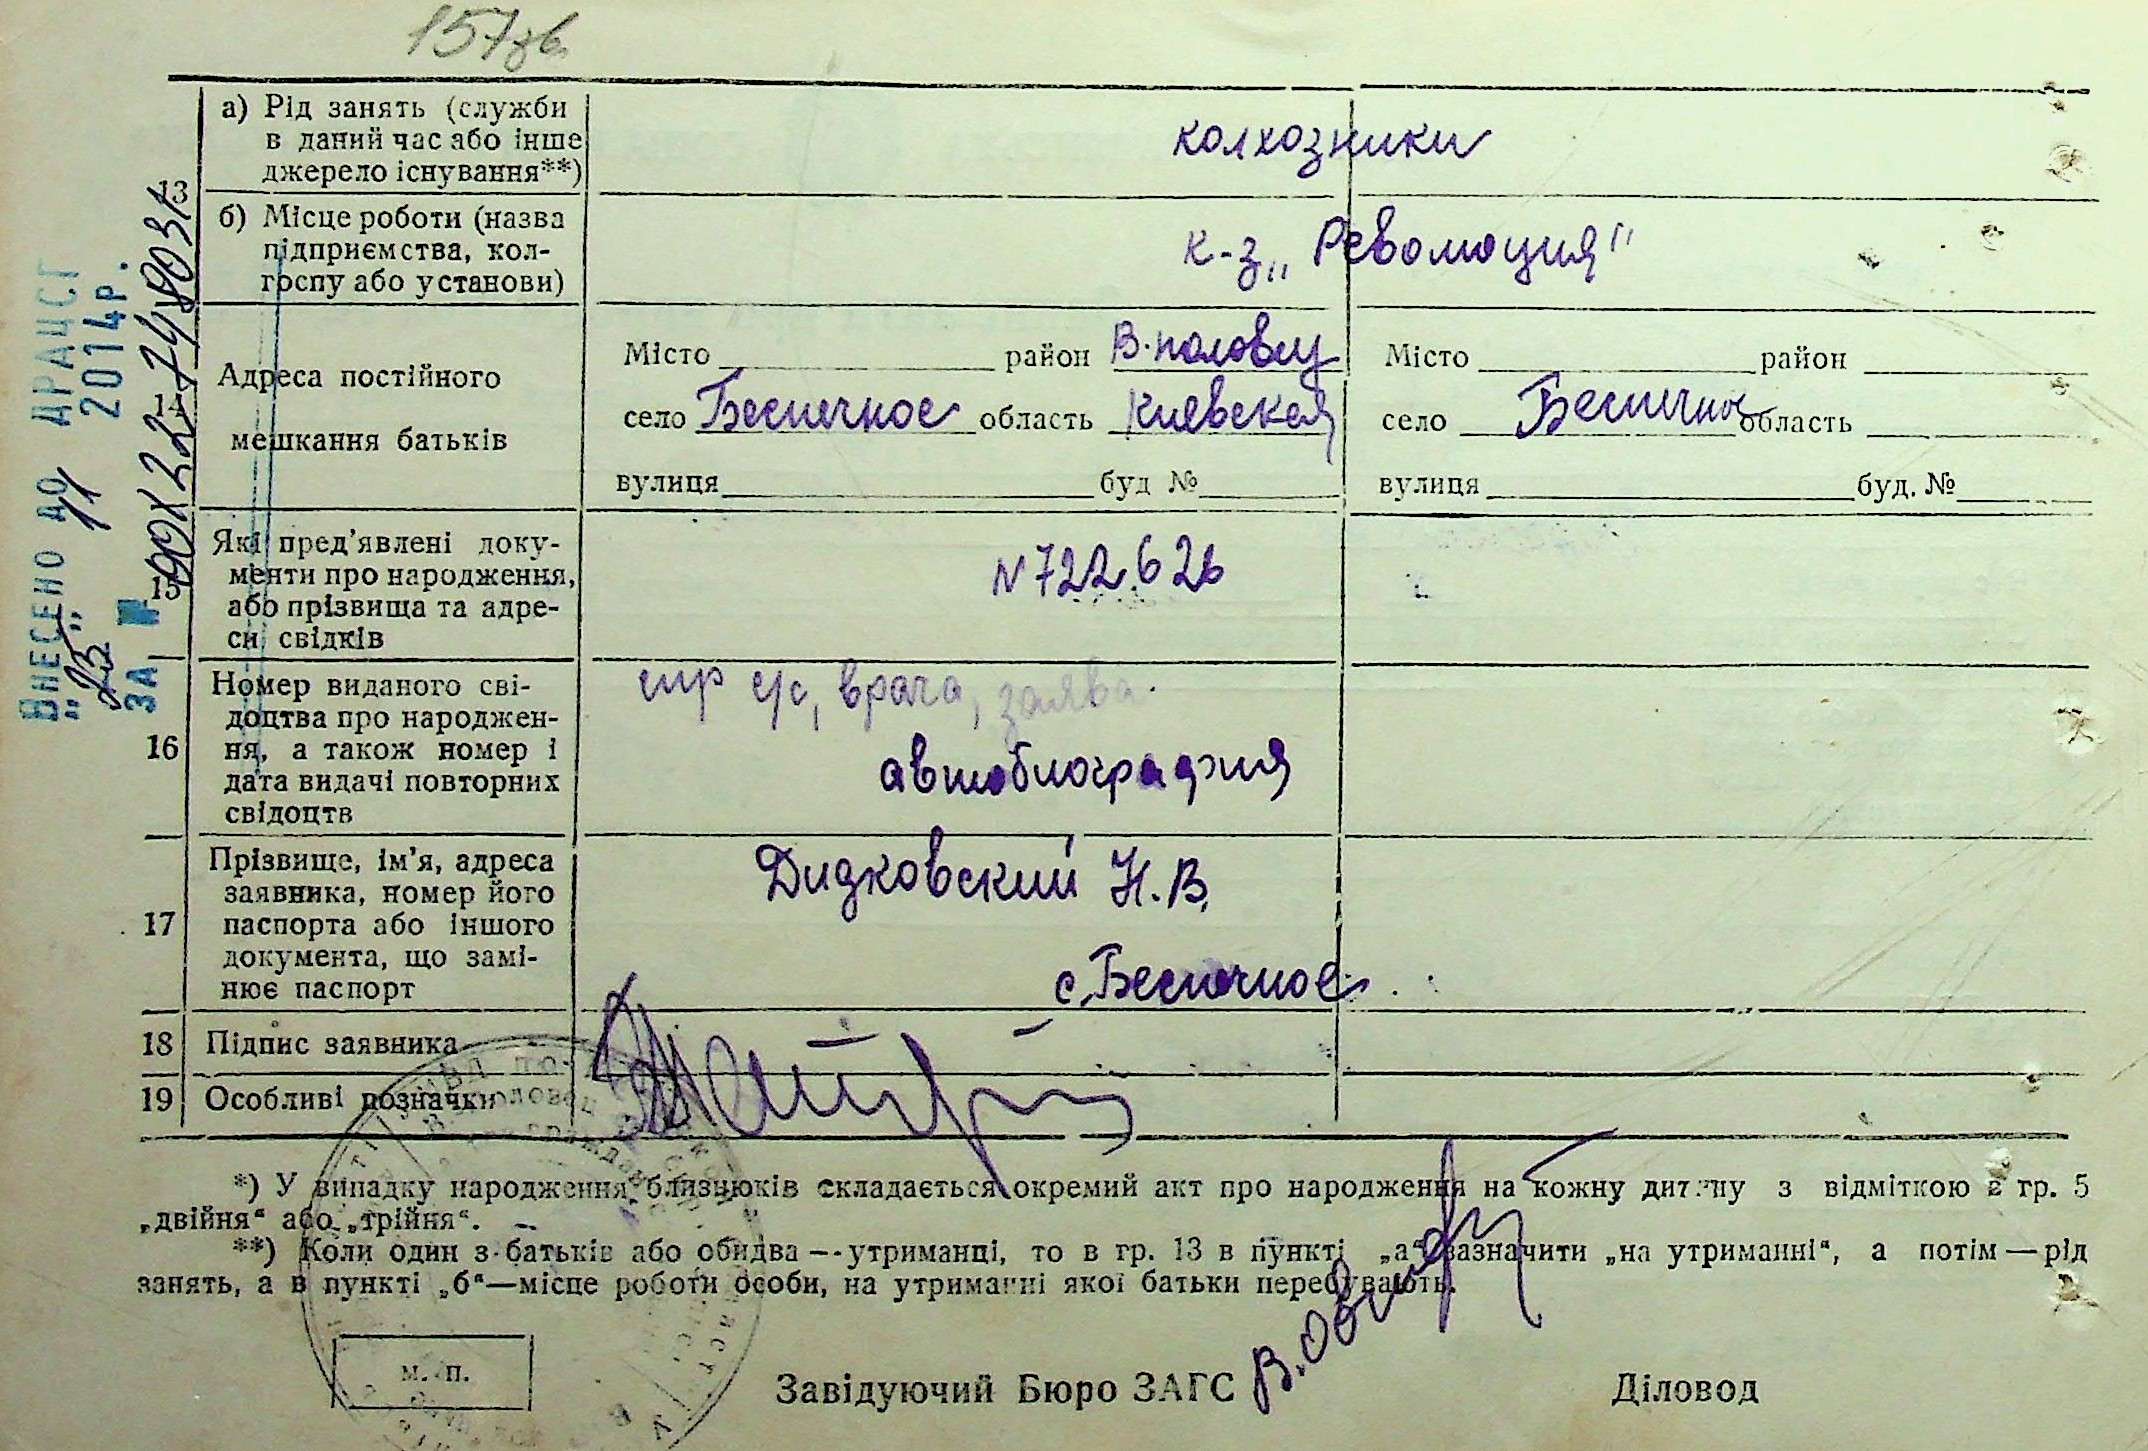 157зв.
а) Рід занять (служби
в даний час або інше
джерело існування**)
колхозники
13
б) Місце роботи (назва
підприємства, кол-
госпу або установи)
к-з „Революция"
14
Адреса постійного
мешкання батьків
Місто район В-Половец
село Беспечное область Киевская
вулиця буд №
Місто район
село Беспечное область
вулиця буд. №
15
Які пред'явлені доку-
менти про народження,
або прізвища та адре-
си свідків
N 722626
16
Номер виданого сві-
доцтва про народжен-
ня, а також номер і
дата видачі повторних
свідоцтв
спр с/с, врача, заява.
автобиография
17
Прізвище, ім'я, адреса
заявника, номер його
паспорта або іншого
документа, що замі-
нює паспорт
Дидковский Н.В,
с. Беспечное
18 Підпис заявника
19 Особливі позначки
*) У випадку народження близнюків складається окремий акт про народження на кожну дитину з відміткою в гр. 5
„двійня“ або „трійня“.
**) Коли один з батьків або обидва—утриманці, то в гр. 13 в пункті „а“ зазначити „на утриманні“, а потім—рід
занять, а в пункті „б“—місце роботи особи, на утриманні якої батьки перебувають.
м. п.
Завідуючий Бюро ЗАГС
Діловод
Внесено до ДРАЦСГ
„ 11 2014р.
ЗА №